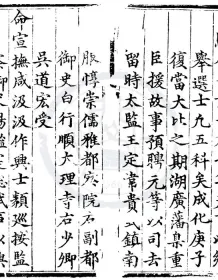 舉選士九五科矣成化庚子
復當大比之期湖廣藩臬重
臣援故事預聘元等以司去
留時太監王定韋貴
鎮南
服惇崇儒雅都察院右副都
御史白行順大理寺右少卿
吳道宏受
命宣撫咸汲汲作興士類巡按監